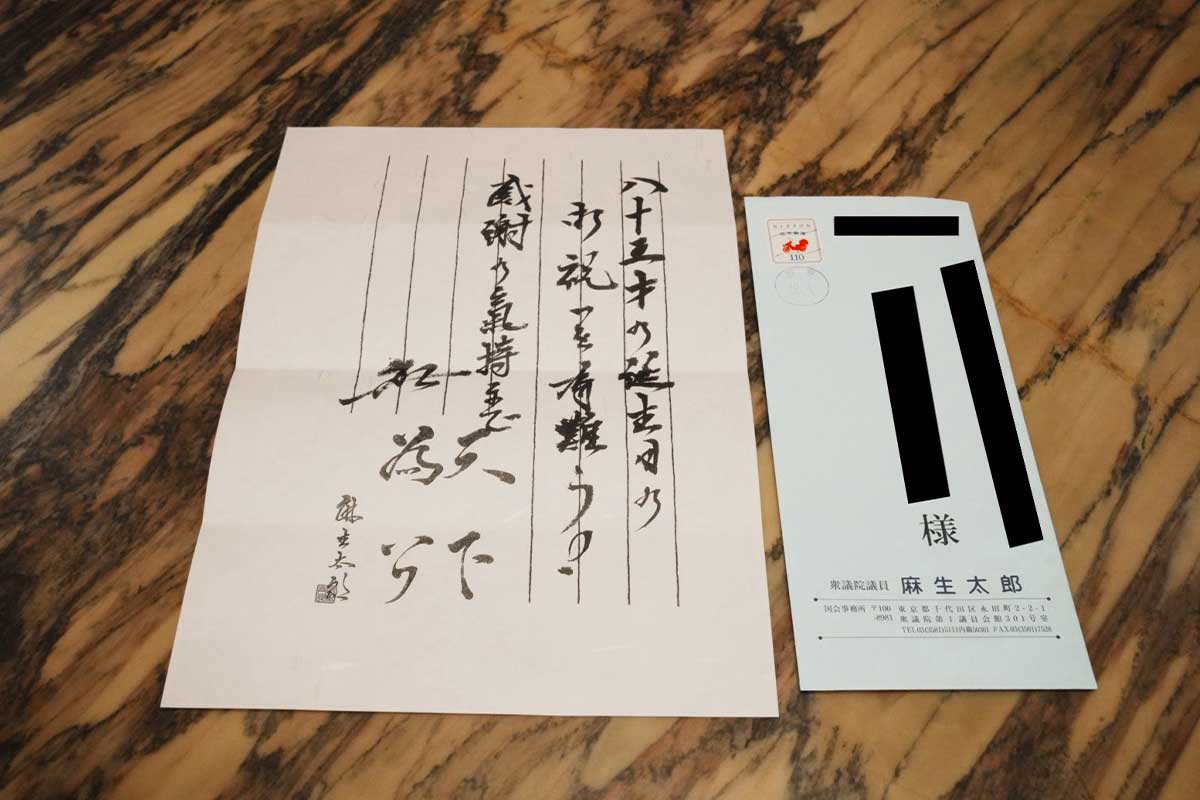 八十五才の誕生日の
御祝いを有難う
感謝の氣持まで
天下
為公
麻生太郎
NIPPON
110
様
衆議院議員 麻生太郎
国会事務所 〒100 東京都千代田区永田町2-2-1
-8981 衆議院第1議員会館301号室
TEL.03(3581)5111内線50301 FAX.03(3501)7528